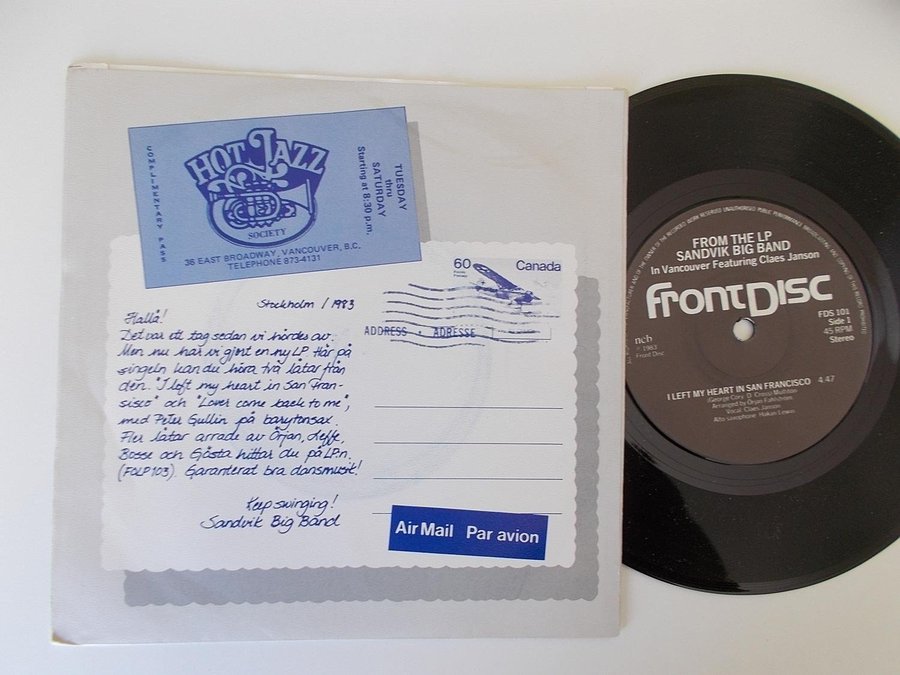 COMPLIMENTARY PASS
HOT JAZZ
SOCIETY
TUESDAY
thru
SATURDAY
Starting at 8:30 p.m.
36 EAST BROADWAY, VANCOUVER, B.C.
TELEPHONE 873-4131
60
Canada
ADDRESS · ADRESSE
Stockholm / 1983
Hallå!
Det var ett tag sedan vi hördes av.
Men nu har vi gjort en ny LP. Här på
singeln kan du höra två låtar från
den. "I left my heart in San Fran-
sisco" och "Lover come back to me",
med Peter Gullin på barytonsax.
Fler låtar arrade av Örjan, Leffe,
Bosse och Gösta hittar du på LP:n.
(FOLP 103). Garanterat bra dansmusik!
Keep swinging!
Sandvik Big Band
Air Mail Par avion
FROM THE LP
SANDVIK BIG BAND
In Vancouver Featuring Claes Janson
FrontDisc
FDS 101
Side 1
45 RPM
Stereo
ncb
℗ 1983
Front Disc
I LEFT MY HEART IN SAN FRANCISCO 4.47
Arranged by Örjan Fahlström
Vocal Claes Janson
Alto saxophone Håkan Lewin